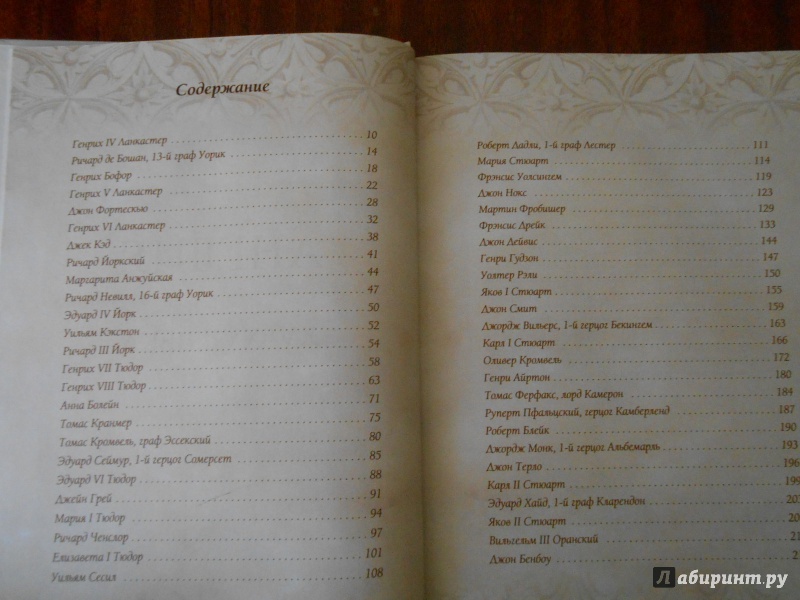 Содержание
Генрих IV Ланкастер 10
Ричард де Бошан, 13-й граф Уорик 14
Генрих Бофор 18
Генрих V Ланкастер 22
Джон Фортескью 28
Генрих VI Ланкастер 32
Джек Кэд 38
Ричард Йоркский 41
Маргарита Анжуйская 44
Ричард Невилл, 16-й граф Уорик 47
Эдуард IV Йорк 50
Уильям Кэкстон 52
Ричард III Йорк 54
Генрих VII Тюдор 58
Генрих VIII Тюдор 63
Анна Болейн 71
Томас Кранмер 75
Томас Кромвель, граф Эссекский 80
Эдуард Сеймур, 1-й герцог Сомерсет 85
Эдуард VI Тюдор 88
Джейн Грей 91
Мария I Тюдор 94
Ричард Ченслор 97
Елизавета I Тюдор 101
Уильям Сесил 108
Роберт Дадли, 1-й граф Лестер 111
Мария Стюарт 114
Фрэнсис Уолсингем 119
Джон Нокс 123
Мартин Фробишер 129
Фрэнсис Дрейк 133
Джон Дейвис 144
Генри Гудзон 147
Уолтер Рэли 150
Яков I Стюарт 155
Джон Смит 159
Джордж Вильерс, 1-й герцог Бекингем 163
Карл I Стюарт 166
Оливер Кромвель 172
Генри Айртон 180
Томас Ферфакс, лорд Камерон 184
Руперт Пфальцский, герцог Камберленд 187
Роберт Блейк 190
Джордж Монк, 1-й герцог Альбемарль 193
Джон Терло 196
Карл II Стюарт 199
Эдуард Хайд, 1-й граф Кларендон 20
Яков II Стюарт 20
Вильгельм III Оранский 21
Джон Бенбоу 2
Лабиринт.ру